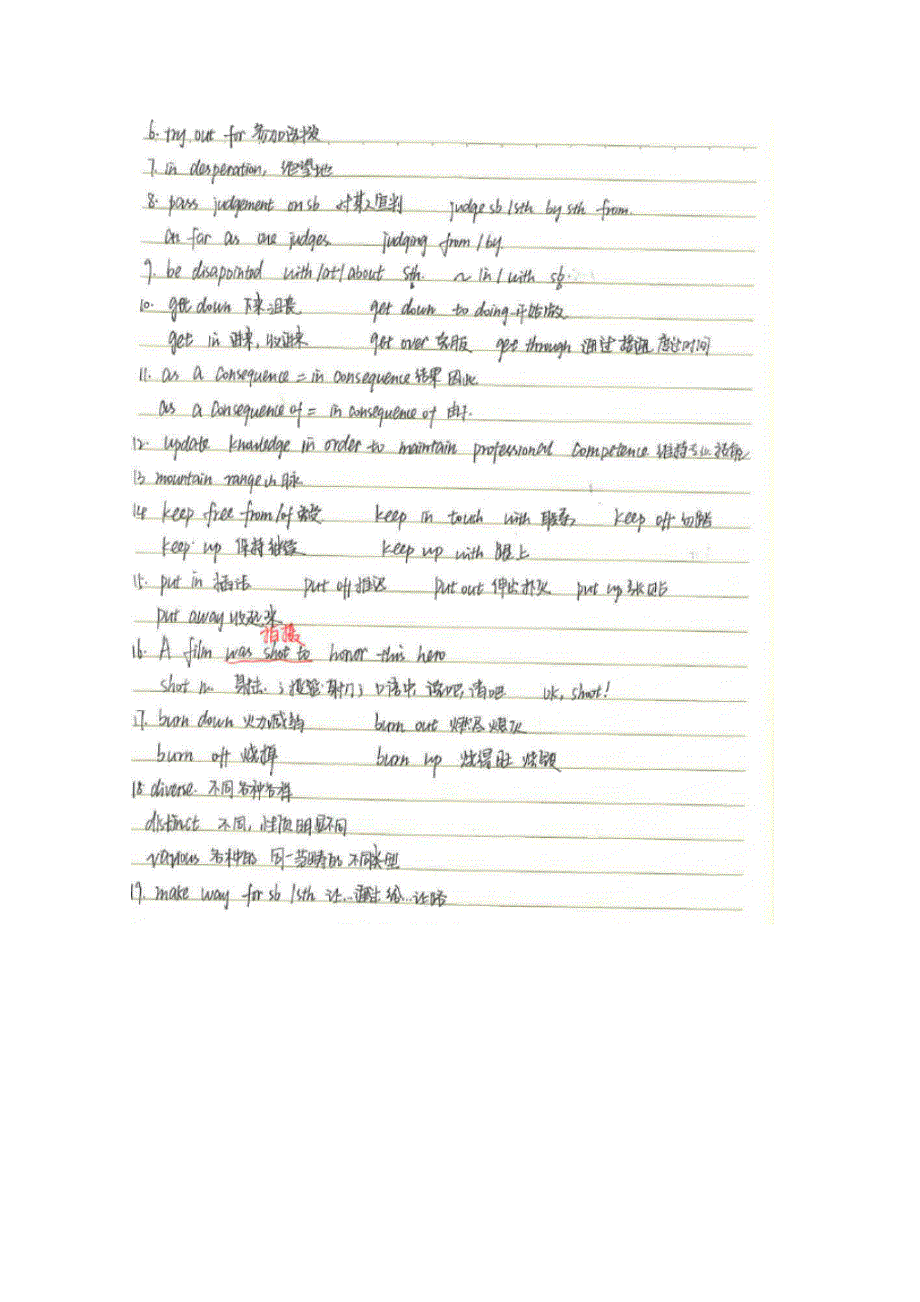 6. try out for 参加选拔
7. in desperation, 绝望地
8. pass judgement on sb 对某人宣判 judge sb/sth by sth from.
as far as one judges judging from/by.
9. be disapointed with/at/about sth. ~ in/with sb.
10. get down 下来沮丧 get down to doing 开始做
get in 进来, 收进来 get over 克服 get through 通过 接通 度过时间
11. as a consequence = in consequence 结果 因此
as a consequence of = in consequence of 由于.
12. update knowledge in order to maintain professional competence 维持专业技能
13 mountain range 山脉
14 keep free from/of keep in touch with 联系 keep off 勿踏
keep up 保持继续 keep up with 跟上
15. put in 插话 put off 推迟 put out 伸出扑灭 put up 张贴
put away 收起来
拍摄
16. A film was shot to honor this hero
shot n. 射击; 射门; 口语中 说吧, 请吧 ok, shoot!
17. burn down 火力减弱 burn out 燃尽熄灭
burn off 烧掉 burn up 烧得旺 烧毁
18 diverse. 不同各种各样
distinct 不同, 性质明显不同
various 各种的 同一范畴的不同类型
19. make way for sb/sth 让… 给…让路